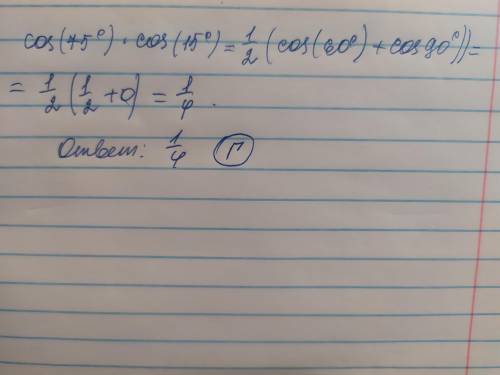 cos(75°) · cos(15°) = 1/2 (cos(60°) + cos90°)) =
= 1/2 (1/2 + 0) = 1/4.
Ответ: 1/4 Г